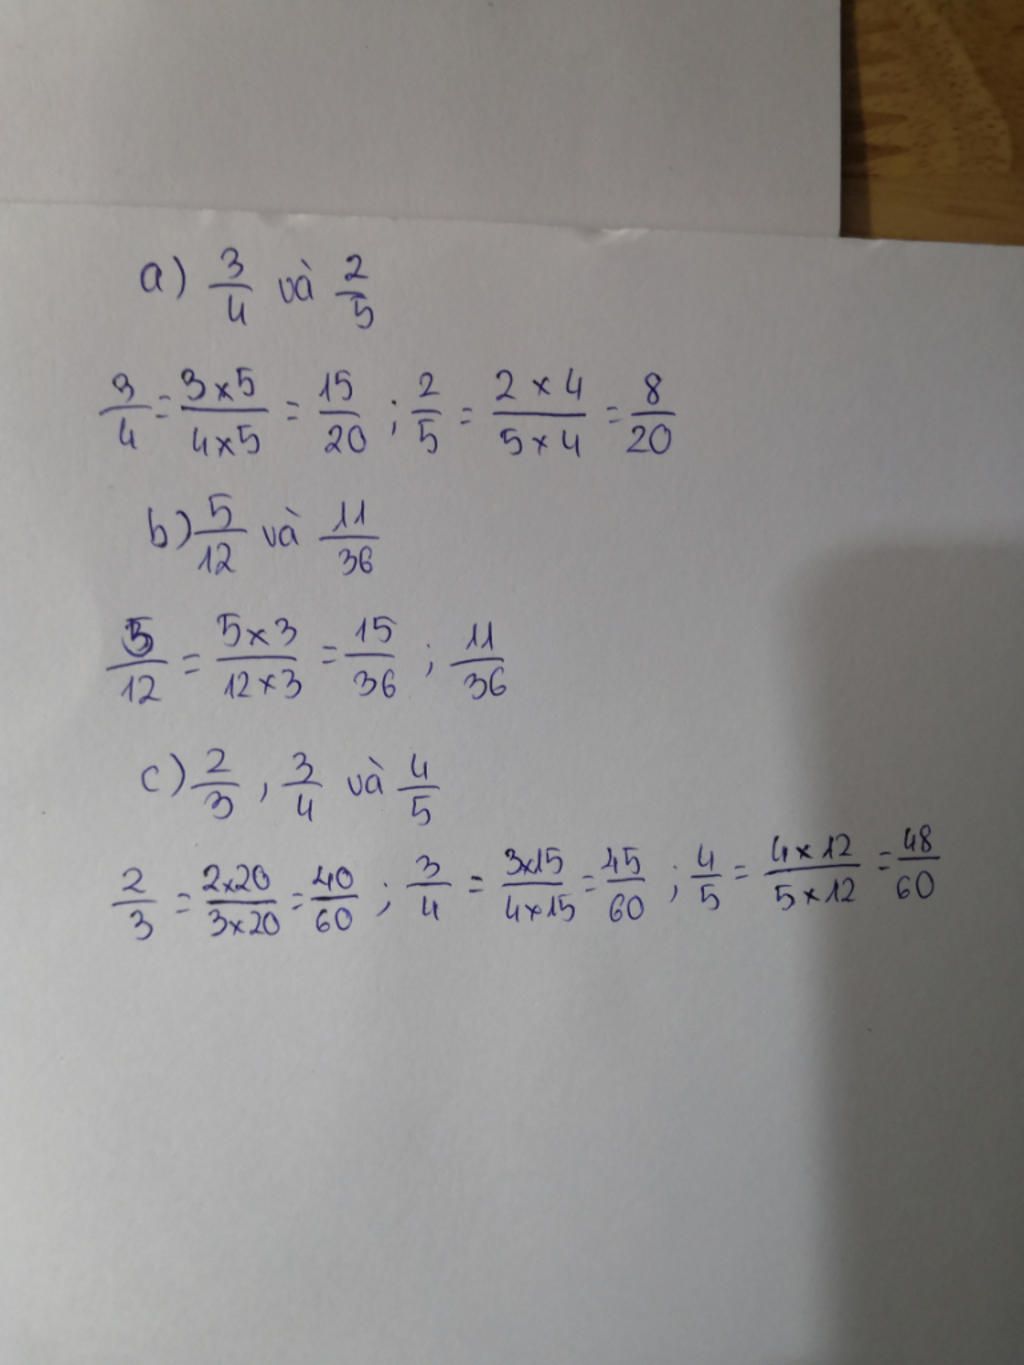 a) 3/4 và 2/5
3/4 = 3×5/4×5 = 15/20 ; 2/5 = 2×4/5×4 = 8/20
b) 5/12 và 11/36
5/12 = 5×3/12×3 = 15/36 ; 11/36
c) 2/3 , 3/4 và 4/5
2/3 = 2×20/3×20 = 40/60 ; 3/4 = 3×15/4×15 = 45/60 ; 4/5 = 4×12/5×12 = 48/60